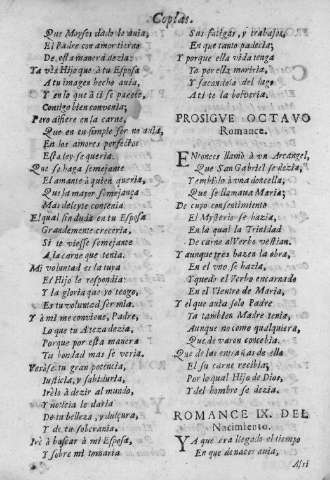 Coplas.
Que Moyses dado le auia,
El Padre con amor tierno
De esta manera dezia:
Ya vès Hijo que à tu Esposa
A tu imagen hecho auia,
Y en lo que à ti se parece,
Contigo bien conuenia;
Pero difiere en la carne,
Que en tu simple ser no auia,
En los amores perfectos
Esta ley se queria.
Que se haga semejante
El amante à quien queria,
Que la mayor semejança
Mas deleyte contenia
El qual sin duda en tu Esposa
Grandemente creceria,
Si te viesse semejante
A la carne que tenia.
Mi voluntad es la tuya
El Hijo le respondia:
Y la gloria que yo tengo,
Es tu voluntad ser mia.
Y à mi me conviene, Padre,
Lo que tu Alteza dezia,
Porque por esta manera
Tu bondad mas se veria.
Veràse tu gran potencia,
Iusticia, y sabiduria,
Irèlo à dezir al mundo,
Y noticia le daria
De tu belleza, y dulçura,
Y de tu soberania.
Irè à buscar à mi Esposa,
Y sobre mi tomaria
Sus fatigas, y trabajos,
En que tanto padecia;
Y porque ella vida tenga
Yo por ella moriria,
Y sacandola del lago
A ti te la bolveria.
PROSIGVE OCTAVO
Romance.
ENtonces llamò à vn Arcangel,
Que San Gabriel se dezia,
Y embiòlo à vna donzella,
Que se llamaua Maria;
De cuyo consentimiento
El Mysterio se hazia,
En la qual la Trinidad
De carne al Verbo vestian.
Y aunque tres hazen la obra,
En el vno se hazia,
Y quedò el Verbo encarnado
En el Vientre de Maria,
Y el que auia solo Padre
Ya tambien Madre tenia,
Aunque no como qualquiera,
Que de varon concebia.
Que de las entrañas de ella
El su carne recibia;
Por lo qual Hijo de Dios,
Y del hombre se dezia.
ROMANCE IX. DEL
Nacimiento.
YA que era llegado el tiempo
En que de nacer auia,
Assi